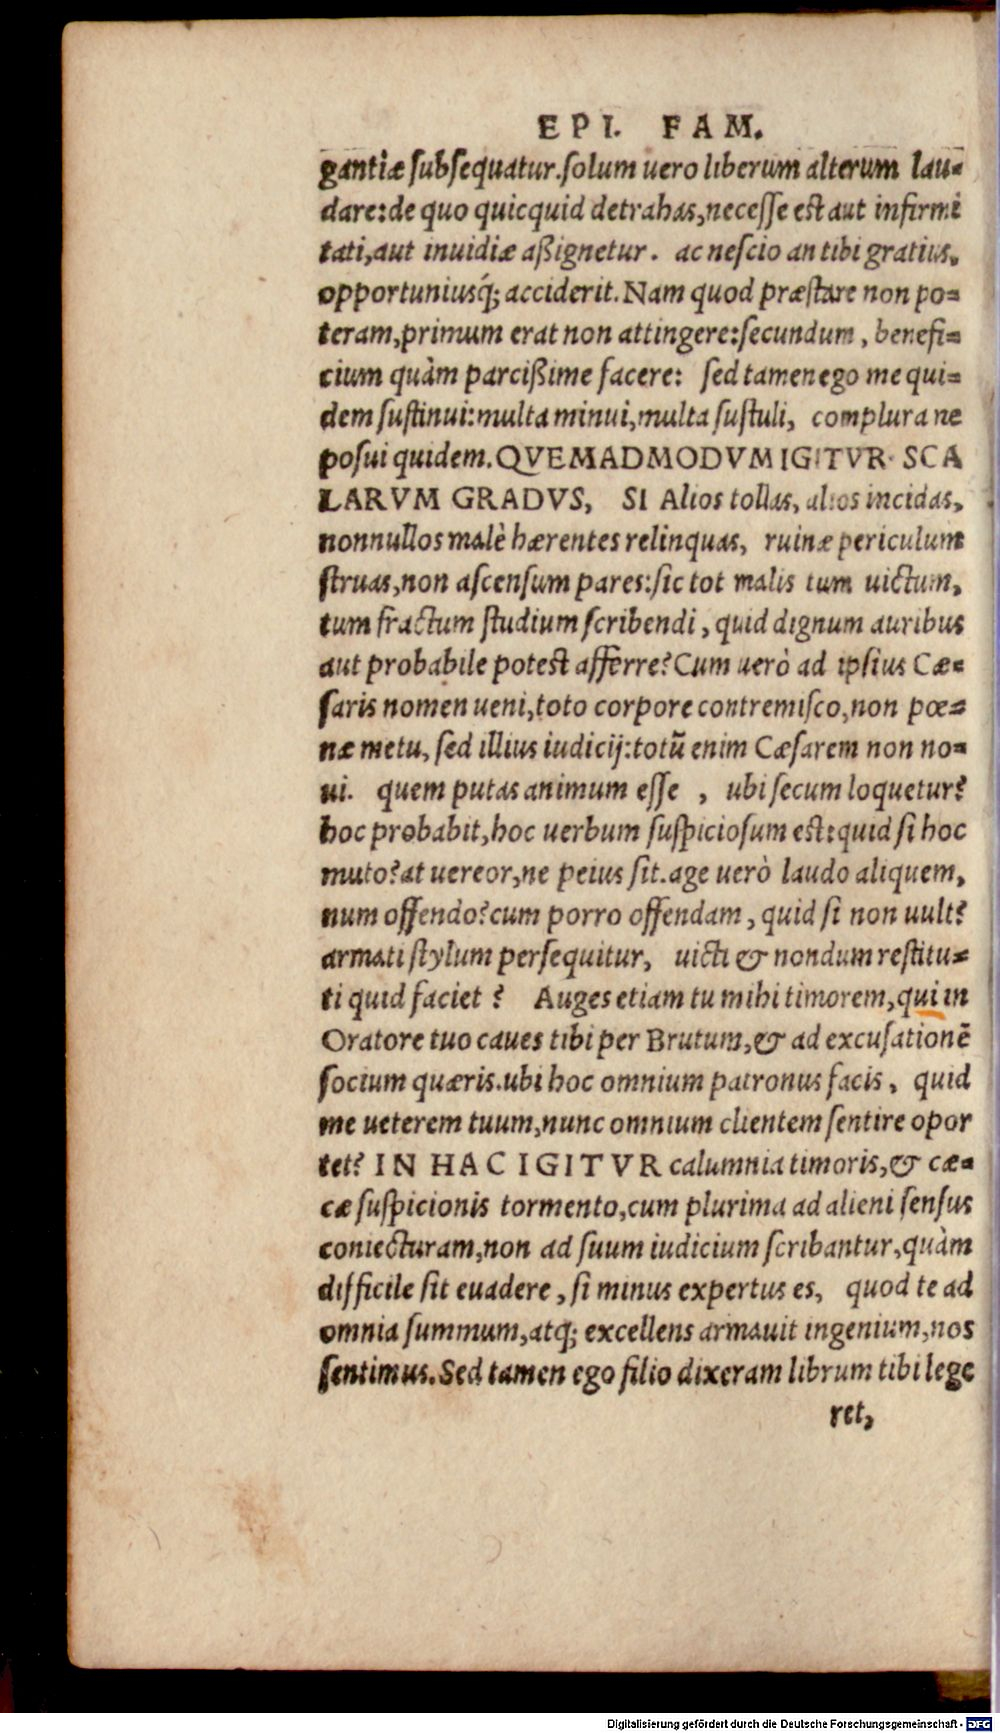 EPI. FAM.
gantiæ ſubſequatur.ſolum uero liberum alterum lau-
dare:de quo quicquid detrahas,neceſſe est aut infirmi
tati,aut inuidiæ aßignetur. ac neſcio an tibi gratius,
opportuniusq́; acciderit.Nam quod præſtare non po-
teram,primum erat non attingere:ſecundum, benefi-
cium quàm parcißime facere: ſed tamen ego me qui-
dem ſuſtinui:multa minui,multa ſuſtuli, complura ne
poſui quidem.QVEMADMODVM IGITVR SCA
LARVM GRADVS, SI Alios tollas, alios incidas,
nonnullos malè hærentes relinquas, ruinæ periculum
ſtruas,non aſcenſum pares:ſic tot malis tum uictum,
tum fractum ſtudium ſcribendi, quid dignum auribus
aut probabile potest afferre?Cum uerò ad ipſius Cæ-
ſaris nomen ueni,toto corpore contremiſco,non pœ-
næ metu, ſed illius iudicij:totũ enim Cæſarem non no-
ui. quem putas animum eſſe , ubi ſecum loquetur?
hoc probabit,hoc uerbum ſuſpicioſum est:quid ſi hoc
muto?at uereor,ne peius ſit.age uerò laudo aliquem,
num offendo?cum porro offendam, quid ſi non uult?
armati ſtylum perſequitur, uicti & nondum reſtitu-
ti quid faciet ? Auges etiam tu mihi timorem,qui in
Oratore tuo caues tibi per Brutum,& ad excuſationẽ
ſocium quæris.ubi hoc omnium patronus facis, quid
me ueterem tuum,nunc omnium clientem ſentire opor
tet? IN HAC IGITVR calumnia timoris,& cæ-
cæ ſuſpicionis tormento,cum plurima ad alieni ſenſus
coniecturam,non ad ſuum iudicium ſcribantur,quàm
difficile ſit euadere, ſi minus expertus es, quod te ad
omnia ſummum,atq; excellens armauit ingenium,nos
ſentimus.Sed tamen ego filio dixeram librum tibi lege
ret,
Digitalisierung gefördert durch die Deutsche Forschungsgemeinschaft - DFG